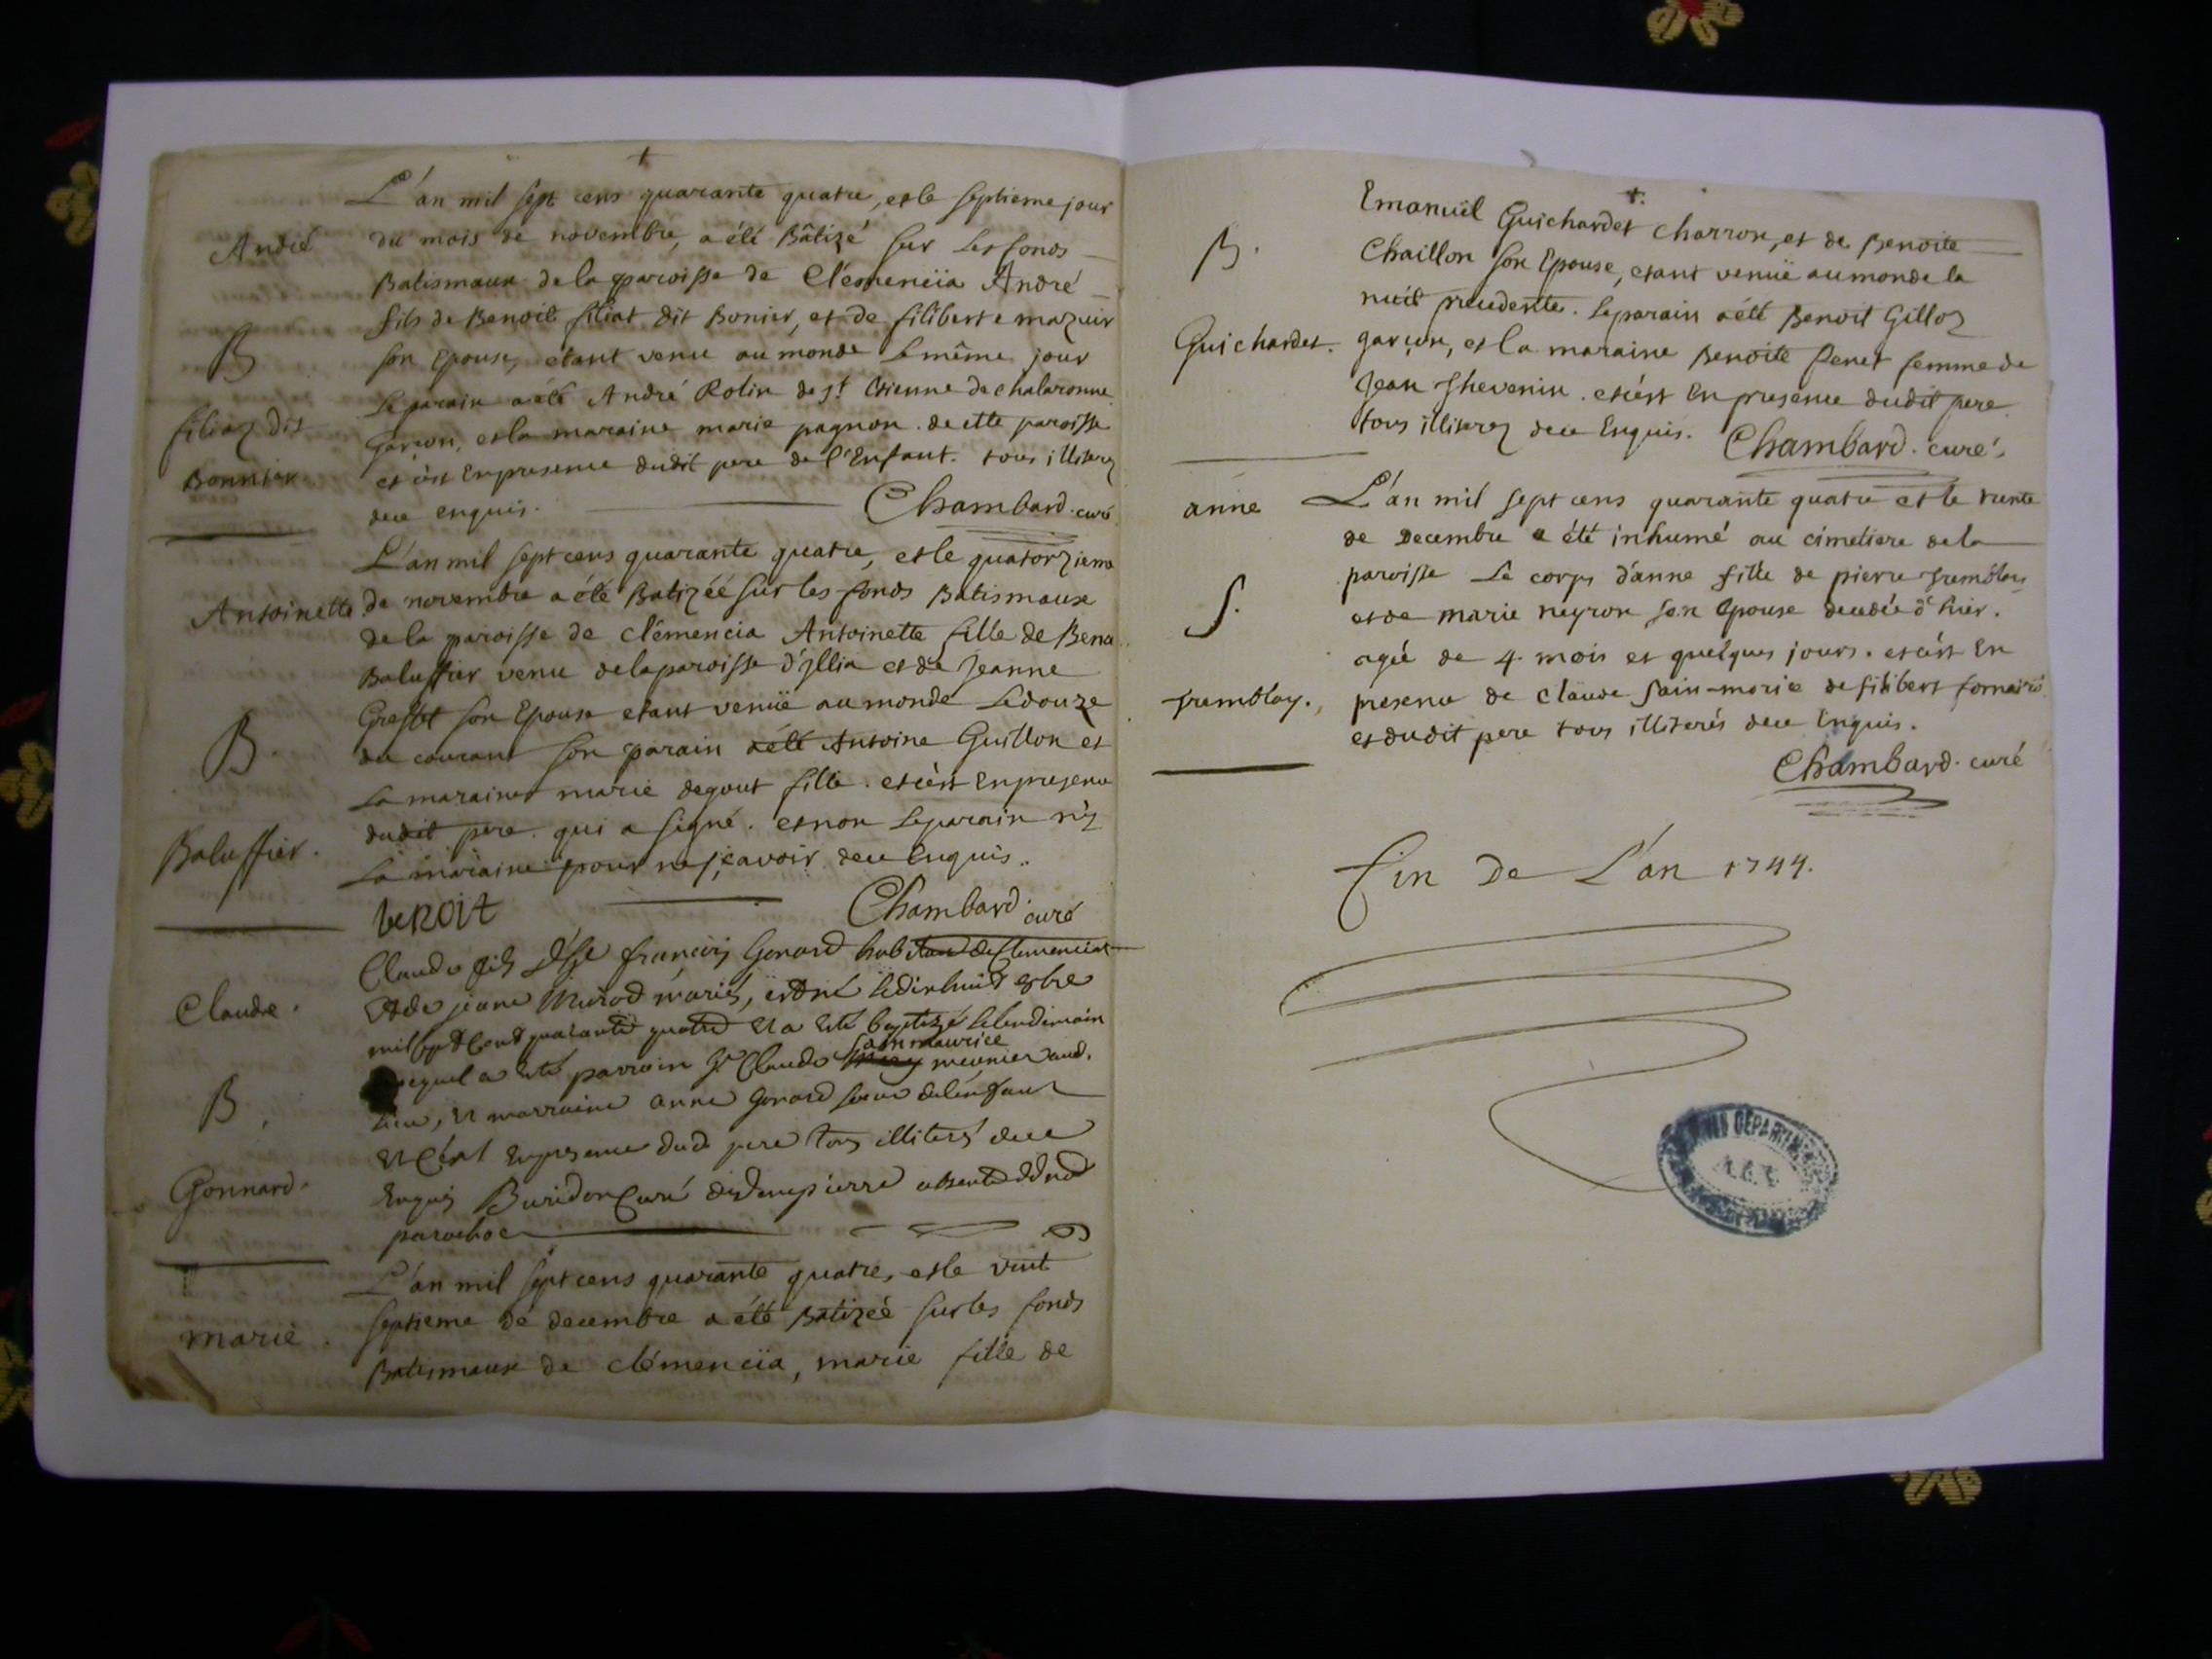 L'an mil sept cens quarante quatre, et le septieme jour
André
du mois de novembre, a été Bâtizé sur les fonds
Batismaux de la paroisse de Clémenciia André
fils de Benoit filiat dit Bonier, et de filiberte mazuir
B
son Epouse, étant venu au monde le même jour
Le parain a été André Rolin de st Etienne de chalaronne
filiaz dit
Bonnier
garçon, et la maraine marie pagnon de cette paroisse
et c'est En presence dudit pere de l'Enfant. tous illiterez
deue enquis.
Chambard curé
L'an mil sept cens quarante quatre, et le quatorzieme
Antoinette
de novembre a été Batizéé sur les fonds Batismaux
de la paroisse de clémencia Antoinette fille de Beno
Baluffier venu de la paroisse d'jllia et de Jeanne
Greffet son Epouse etant venüe au monde Le douze
B.
du courant son parain a été Antoine Guillon et
La maraine marie degout fille. et c'est En presence
Baluffier.
dudit pere qui a signé. et non le parain n'y
La maraine pour ne sçavoir deue Enquis.
beNOit
Chambard curé
Claude fils de françois Gonard habitand de Clemenciat
Claude.
Et de jeane Murod mariés, est né le dix huid xbre
mil sept Cent quarante quatre et a été baptizé le lendemain
sain maurice
duquel a été parrain Sr Claude meunier aud.
B.
lieu, et marraine anne Gonard soeur de lenfant
Et C'est En presence dud pere tous illiterés deue
Gonnard.
Enquis Buridon Curé de dompierre absente dno
parocho
L'an mil sept cens quarante quatre, et le vint
marie.
septieme de decembre a été Batizéé sur les fonds
Batismaux de clémenciia, marie fille de
Emanüel Guichardet charron, et de Benoite
B.
Chaillon son Epouse, etant venüe au monde la
nuit precedente. Le parain a été Benoit Gilloz
Guichardet.
garçon, et la maraine Benoite fenet femme de
Jean Thevenin. et c'est En presence dudit pere
tous illiterez deue Enquis. Chambard. curé
anne
L'an mil sept cens quarante quatre et le trente
de Decembre a été inhumé au cimetiere de la
paroisse Le corps d'anne fille de pierre tremblay
S.
et de marie neyron son Epouse decedée d'hier.
agée de 4 mois et quelques jours. et c'est En
tremblay.
presence de claude sain-morice de filibert
et dudit pere tous illiterés deue Enquis.
Chambard. curé
fin De L'an 1744.